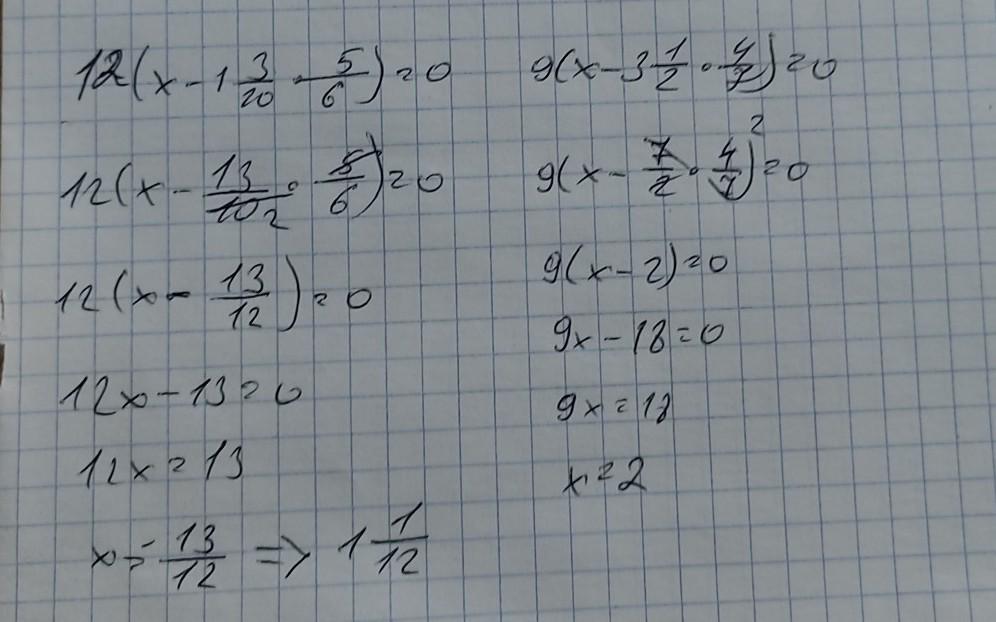 12(x - 1 3/20 · 5/6) = 0
12(x - 13/10 2 · 5/6) = 0
12(x - 13/12) = 0
12x - 13 = 0
12x = 13
x = 13/12 => 1 1/12
9(x - 3 1/2 · 4/7) = 0
9(x - 7/2 · 4/7) 2 = 0
9(x - 2) = 0
9x - 18 = 0
9x = 18
x = 2